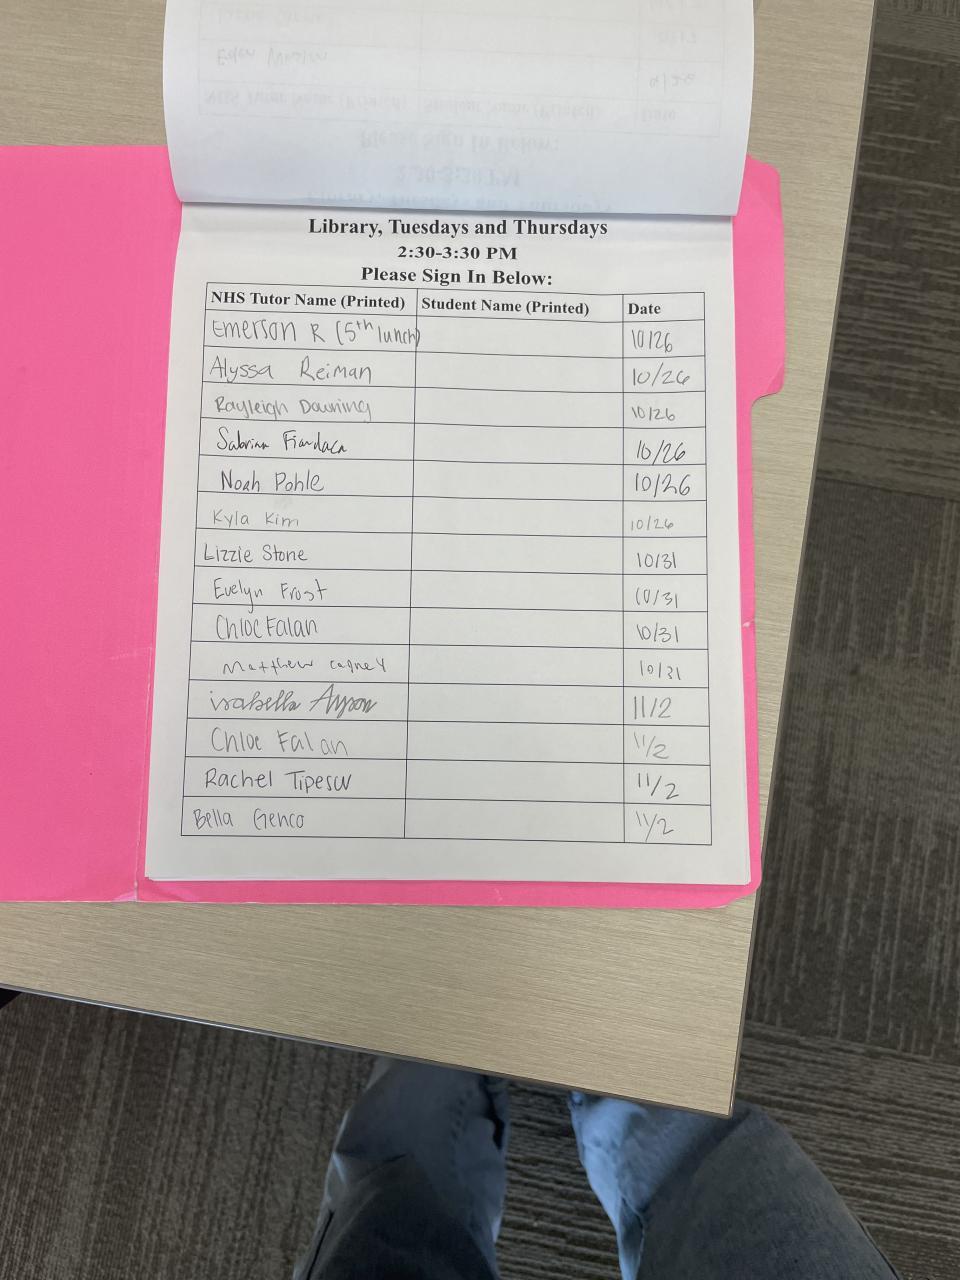 Library, Tuesdays and Thursdays
2:30-3:30 PM
Please Sign In Below:
NHS Tutor Name (Printed) Student Name (Printed) Date
Emerson R (5th lunch) 10/26
Alyssa Reiman 10/26
Rayleigh Downing 10/26
Sabrina Fiandaca 10/26
Noah Pohle 10/26
Kyla Kim 10/26
Lizzie Stone 10/31
Evelyn Frost 10/31
Chloe Falan 10/31
Matthew Cagney 10/31
isabella 11/2
Chloe Falan 11/2
Rachel 11/2
Bella Genco 11/2